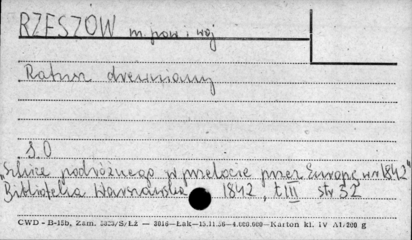 RZESZOW m. pow. i woj
Ratusz drewniany
S.O
"Szkice podróżnego w przelocie przez Europę w r 1842"
Biblioteka Warszawska 1842, t III str 52
CWD - B-15b, Zam. 5325/S/Lż — 3016—Łak—15.11.56—4.000.000—Karton kl. IV A1/200 g